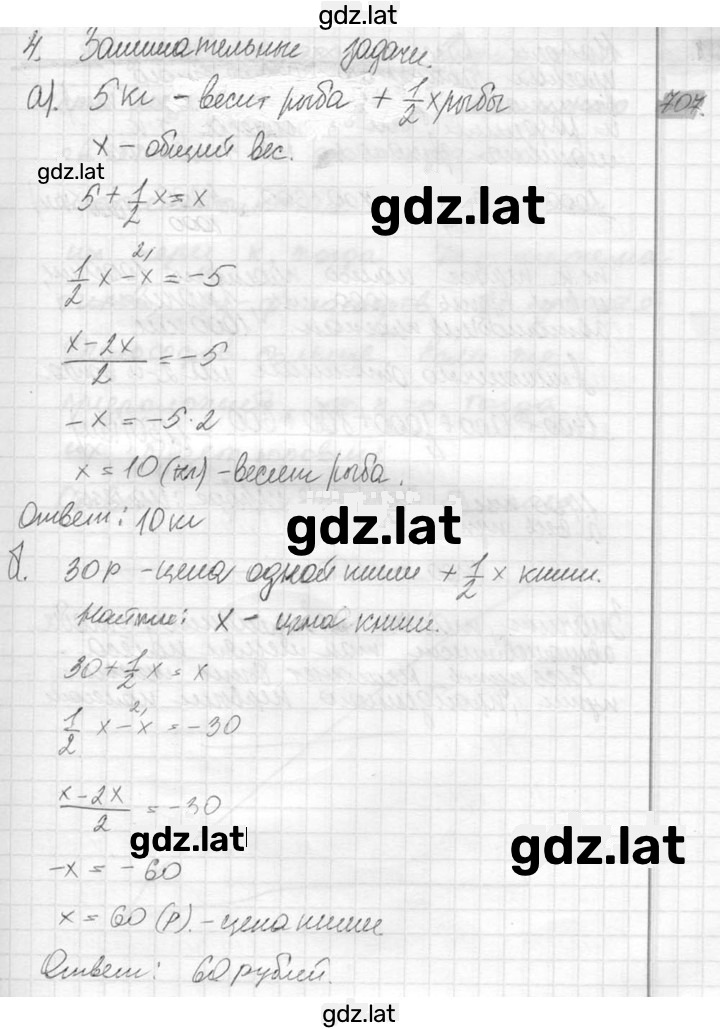 gdz.lat
4. Занимательные задачи.
707.
а). 5 кг – весит рыба + 1/2 x рыбы
x – общий вес.
gdz.lat
5 + 1/2 x = x
gdz.lat
1/2 x – x^2) = –5
(x – 2x)/2 = –5
–x = –5·2
x = 10 (кг) – весит рыба.
Ответ: 10 кг
gdz.lat
б. 30 р – цена одной книги + 1/2 x книги.
x – цена книги.
30 + 1/2 x = x
1/2 x – x^2) = –30
(x – 2x)/2 = –30
gdz.lat
gdz.lat
–x = –60
x = 60 (р). – цена книги
Ответ: 60 рублей.
gdz.lat